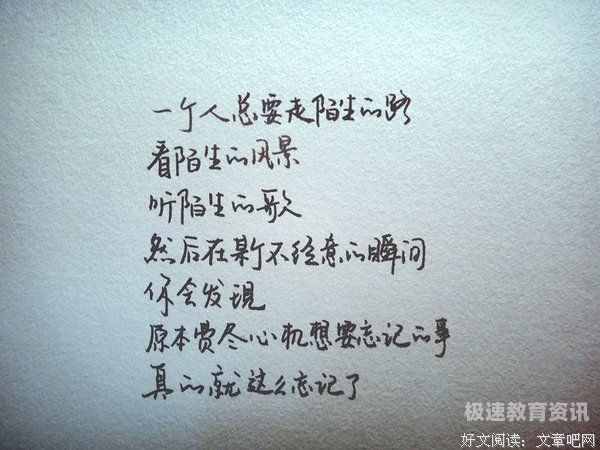 一个人总要走陌生的路
看陌生的风景
听陌生的歌
然后在某个不经意的瞬间
你会发现
原本费尽心机想要忘记的事
真的就这么忘记了
极速教育资讯
好文阅读：文章吧网